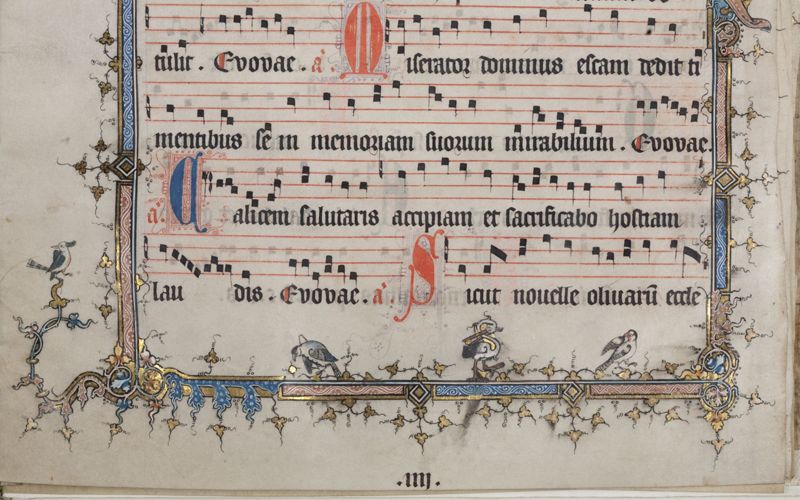 tulit. Evovae. a. Miserator dominus escam dedit ti
mentibus se in memoriam suorum mirabilium. Evovae.
a. Calicem salutaris accipiam et sacrificabo hostiam
lau dis. Evovae. a. Sicut nouelle oliuarū eccle
.IIIJ.